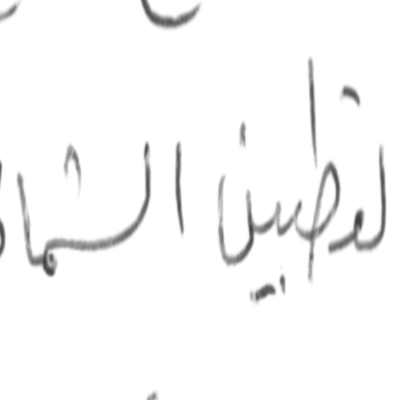 لقطبين الشما